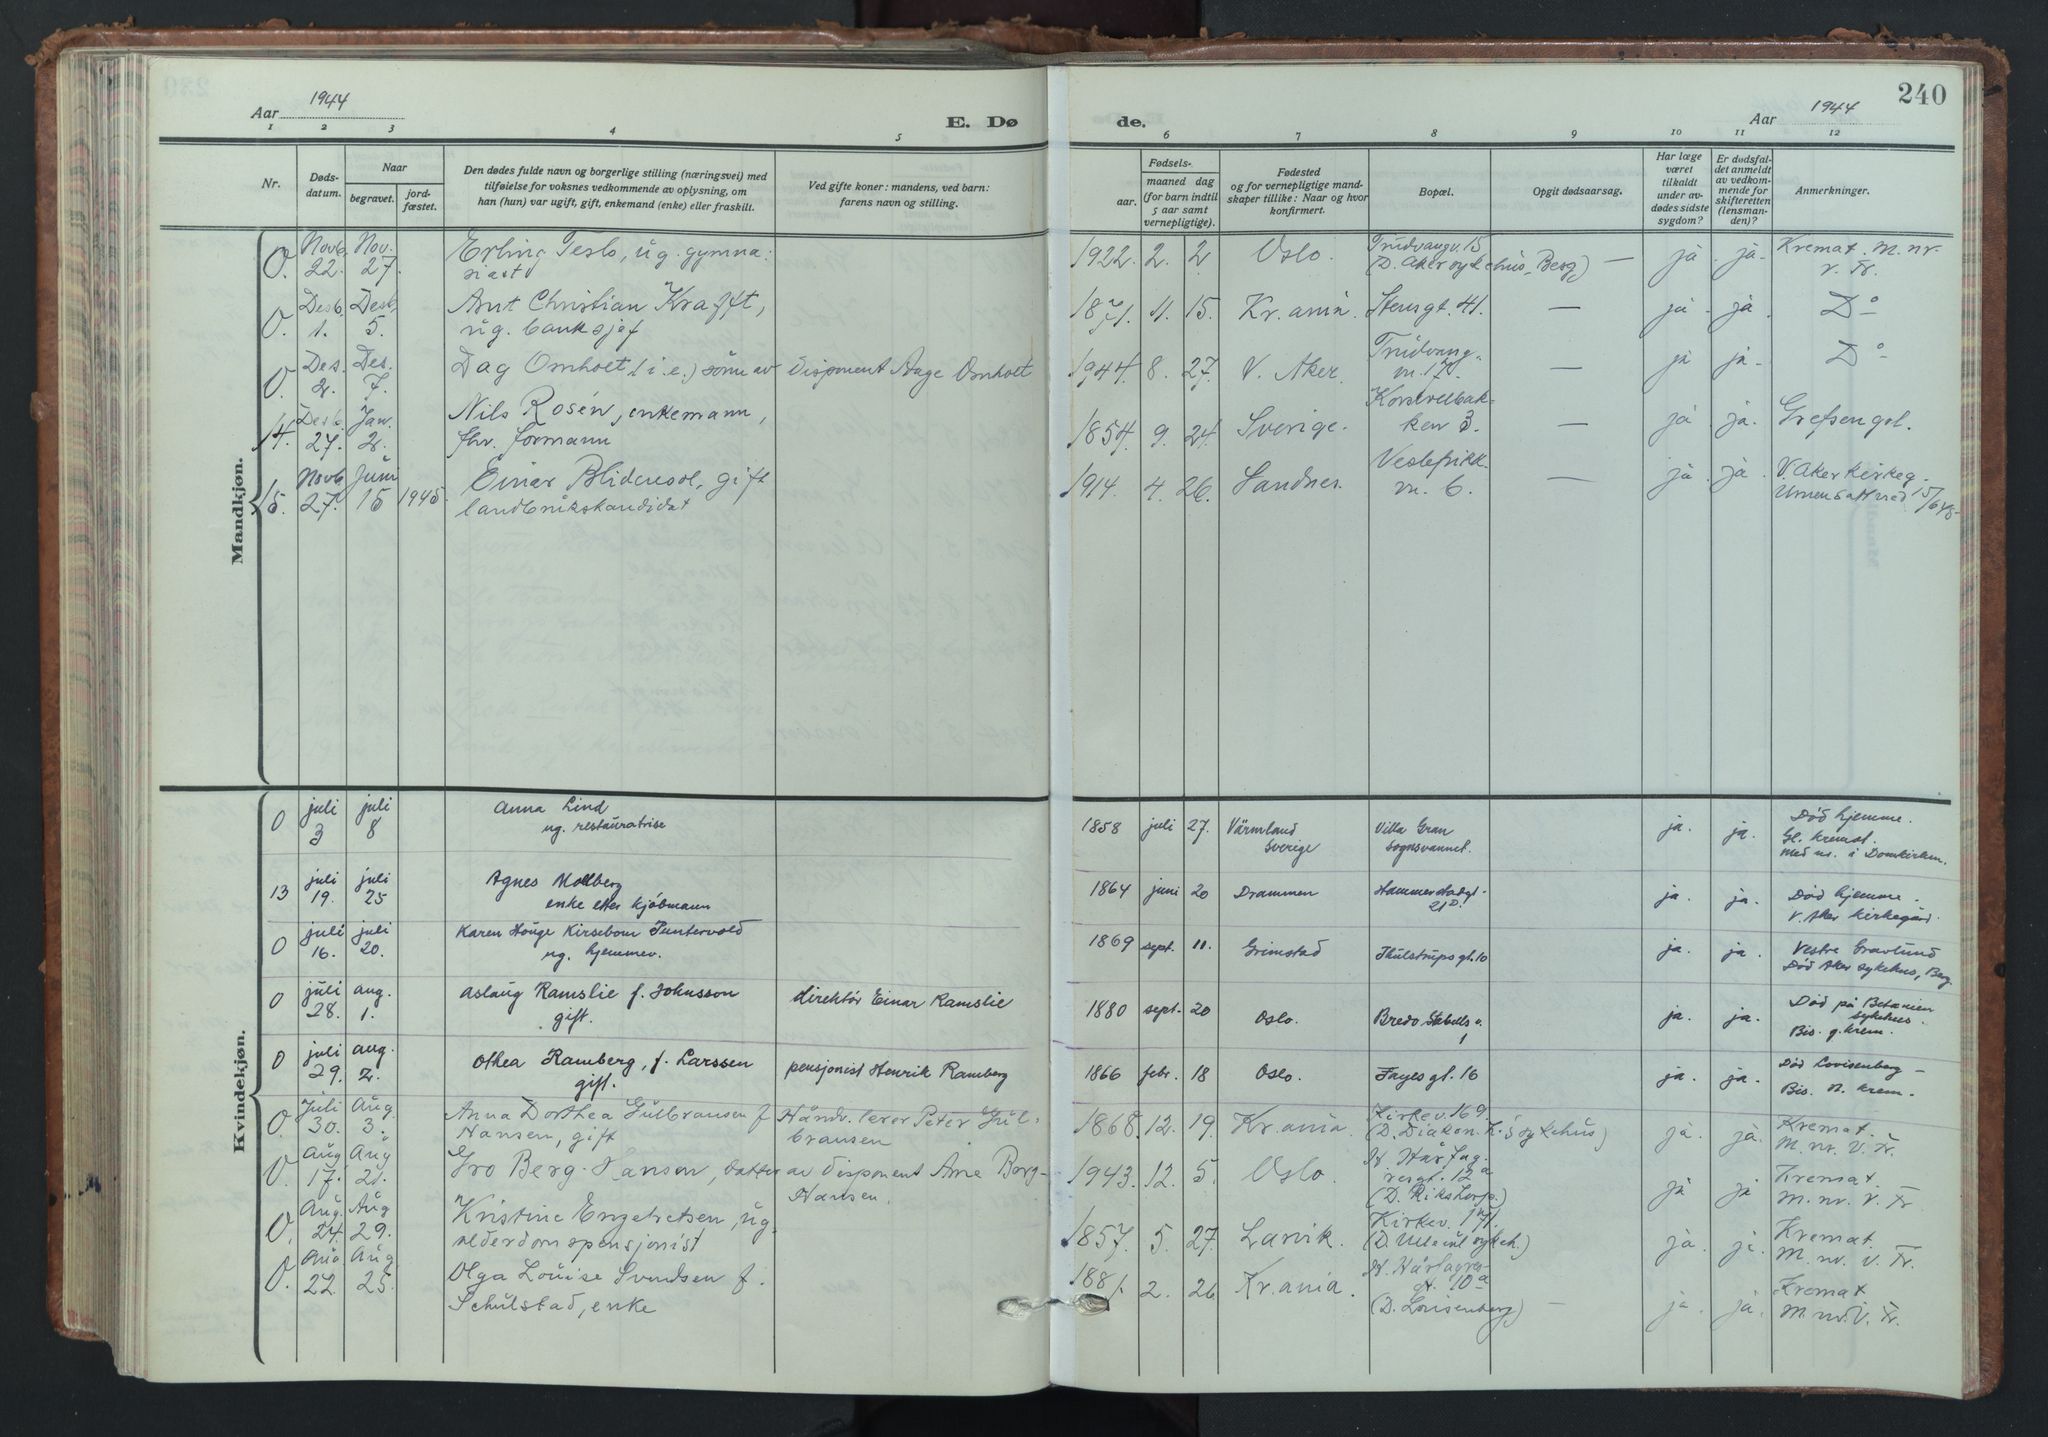 Aar 1944
E. Dø
de.
Aar 1944
240
1 2 3 4 5 6 7 8 9 10 11 12
Nr.
Døds-
datum.
Naar
begravet.
jord-
fæstet.
Den dødes fulde navn og borgerlige stilling (næringsvei) med
tilføielse for voksnes vedkommende av oplysning, om
han (hun) var ugift, gift, enkemand (enke) eller fraskilt.
Ved gifte koner: mandens, ved barn:
farens navn og stilling.
Fødsels-
aar.
maaned dag
(for barn indtil
5 aar samt
vernepligtige).
Fødested
og for vernepligtige mand-
skaper tillike: Naar og hvor
konfirmert.
Bopæl.
Opgit dødsaarsag.
Har læge
været
tilkaldt
under av-
dødes sidste
sygdom?
Er dødsfal-
det anmeldt
av vedkom-
mende for
skifteretten
(lensman-
den)?
Anmerkninger.
Mandkjøn.
O. Novb. 22. Nov. 27. Erling Teslo, ug. gymna-
siast
1922. 2. 2 Oslo. Trudvangv. 15
(D. Aker sykehus, Berg) — ja. ja. Kremat. M. nr.
v. Fr.
O. Desb. 1. Desb. 5. Arnt Christian Krafft,
ug. banksjef
1871. 11. 15. Kr.ania. Stensgt. 41. — ja. ja. Do
O. Des. 2. Des. 7. Dag Omholt (i. e.) sønn av Disponent Aage Omholt
1944. 8. 27. V. Aker. Trudvang-
vn. 17. — ja ja. Do
14. Desb. 27. Jan. 2. Nils Rosén, enkemann,
fhv. formann
1854. 9. 24. Sverige. Korsvollbak-
ken 3. — ja ja. Grefsen gvl.
15. Novb 27. Juni 15 1945. Einar Blidensol, gift
landbrukskandidat
1914. 4. 26. Sandnes. Vestefrikk-
vn. 6. — ja ja. V. Aker kirkeg.
Urnen satt ned 15/6 45-
Kvindekjøn.
0 juli 3 juli 8 Anna Lind
ug. restauratrise
1858 juli 27. Värmland
Sverige
Villa Gran
Sognsvannet.
ja. ja. Død hjemme.
Gl. kremat.
Med nr. i Domkirken.
13 juli 19. juli 25 Agnes Mollberg
enke etter kjøbmann
1864 juni 20 Drammen Hammerstadgt.
21D. ja. ja. Død hjemme.
V. Aker kirkegård.
0 juli 16. juli 20. Karen Hauge Kirsebom Puntervold
ug. hjemmev.
1869 sept. 11. Grimstad Thulstrups gt. 10 ja. ja. Vestre Gravlund
Død Aker sykehus, Berg
0 juli 28. aug. 1. Aslaug Ramslie f. Johnsson
gift.
direktør Einar Ramslie
1880 sept. 20 Oslo. Bredo Stabells v.
1 ja. ja. Død på Betanien
sykehus.
Bis. g. krem.
0 juli 29. aug. 2. Othea Ramberg, f. Larssen
gift.
pensjonist Henrik Ramberg
1866 febr. 18 Oslo. Fayes gt. 16 ja. ja. Død Lovisenberg —
Bis. n. krem.
O. Juli 30. Aug. 3. Anna Dorthea Gulbransen f
Hansen, gift
Håndv. lærer Peter Gul-
bransen
1868. 12. 19. Kr.ania. Kirkev. 169.
(D. Diakon.h.s sykehus) ja. ja. Kremat.
M. nr. V. Fr.
O. Aug 17. Aug 21. Gro Berg-Hansen, datter av Disponent Arne Berg-
Hansen.
1943. 12. 5. Oslo. H. Hårfag-
resgt. 12a
(D. Rikshosp.) ja ja Kremat.
M. nr. V. Fr
O. Aug. 24. Aug 29. Kristine Engebretsen, ug.
alderdomspensjonist
1857. 5. 27. Larvik. Kirkev. 171.
(D. Ullevål sykeh.) ja ja. Kremat.
M. nr. V. Fr.
O. Aug 22. Aug 25. Olga Louise Svendsen f.
Schulstad, enke
1881. 2. 26 Kr.ania. H. Hårfagres-
gt. 10a
(D. Lovisenberg) — ja. ja. Kremat
M. nr. V. Fr.